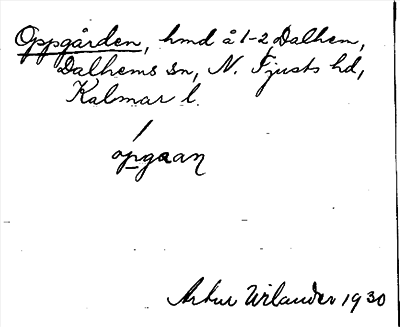 Oppgården, hmd å 1-2 Dalhem,
Dalhems sn, N. Tjusts hd,
Kalmar l.
opgaan
Artur Wilander 1930